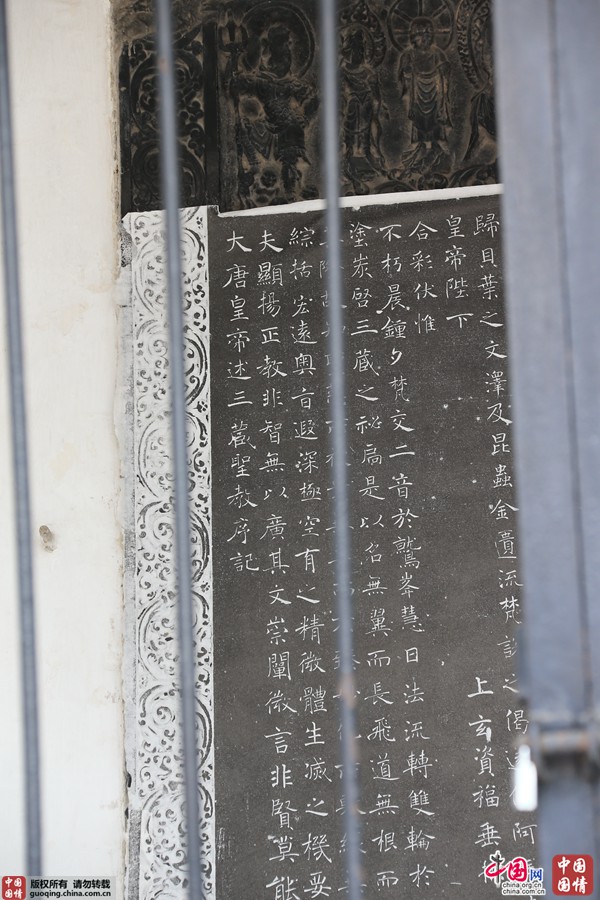 大唐皇帝述三藏聖教序記
夫顯揚正教非智無以廣其文崇闡微言非賢莫能
綜括宏遠奧旨遐深極空有之精微體生滅之機要
塗炭啓三藏之祕扃是以名無翼而長飛道無根而
不朽晨鐘夕梵交二音於鷲峯慧日法流轉雙輪於
合彩伏惟
皇帝陛下 上玄資福垂
歸貝葉之文澤及昆蟲金匱流梵說之偈 阿
中国国情
版权所有 请勿转载
guoqing.china.com.cn
中国网
china.org.cn
china.com.cn
中国国情